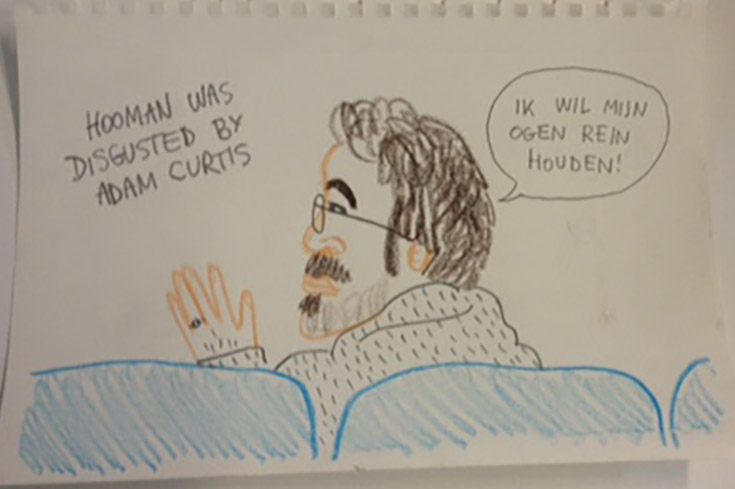 HOOMAN WAS
DISGUSTED BY
ADAM CURTIS
IK WIL MIJN
OGEN REIN
HOUDEN!